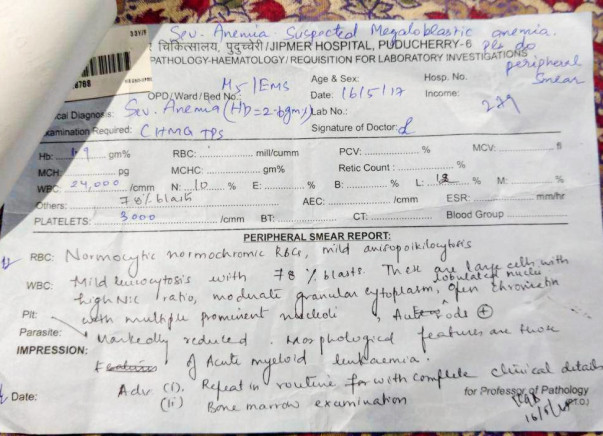 Sev. Anemia Suspected Megaloblastic anemia.
Pls do
peripheral
Smear
चिकित्सालय, पुदुच्चेरी/JIPMER HOSPITAL, PUDUCHERRY-6
PATHOLOGY-HAEMATOLOGY/ REQUISITION FOR LABORATORY INVESTIGATIONS
M5/EMS Age & Sex: Hosp. No.
OPD/Ward/Bed No: Date: 16/5/17 Income:
cal Diagnosis: Sev. Anemia (Hb=2.6gm%) Lab No.:
xamination Required: CHMG TPS Signature of Doctor:
Hb: 1.9 gm% RBC: mill/cumm PCV: % MCV: fl
MCH: pg MCHC: gm% Retic Count: %
WBC: 24,000 /cmm N: 10 % E: % B: % L: 12 % M: %
Others: 78% blasts AEC: /cumm ESR: mm/hr
PLATELETS: 3000 /cmm BT: CT: Blood Group
PERIPHERAL SMEAR REPORT:
RBC: Normocytic normochromic RBCs, mild anisopoikilocytosis
WBC: Mild leucocytosis with 78% blasts. These are large cells with
high N:C ratio, moderate granular cytoplasm, lobulated nuclei open chromatin
Plt: with multiple prominent nucleoli, Auer rods ⊕
Parasite: Markedly reduced. Morphological features are those
IMPRESSION: of Acute myeloid leukaemia.
Adv (i). Repeat in routine for with complete clinical details
(ii) Bone marrow examination
Date: for Professor of Pathology
16/5/17 (P.T.O.)